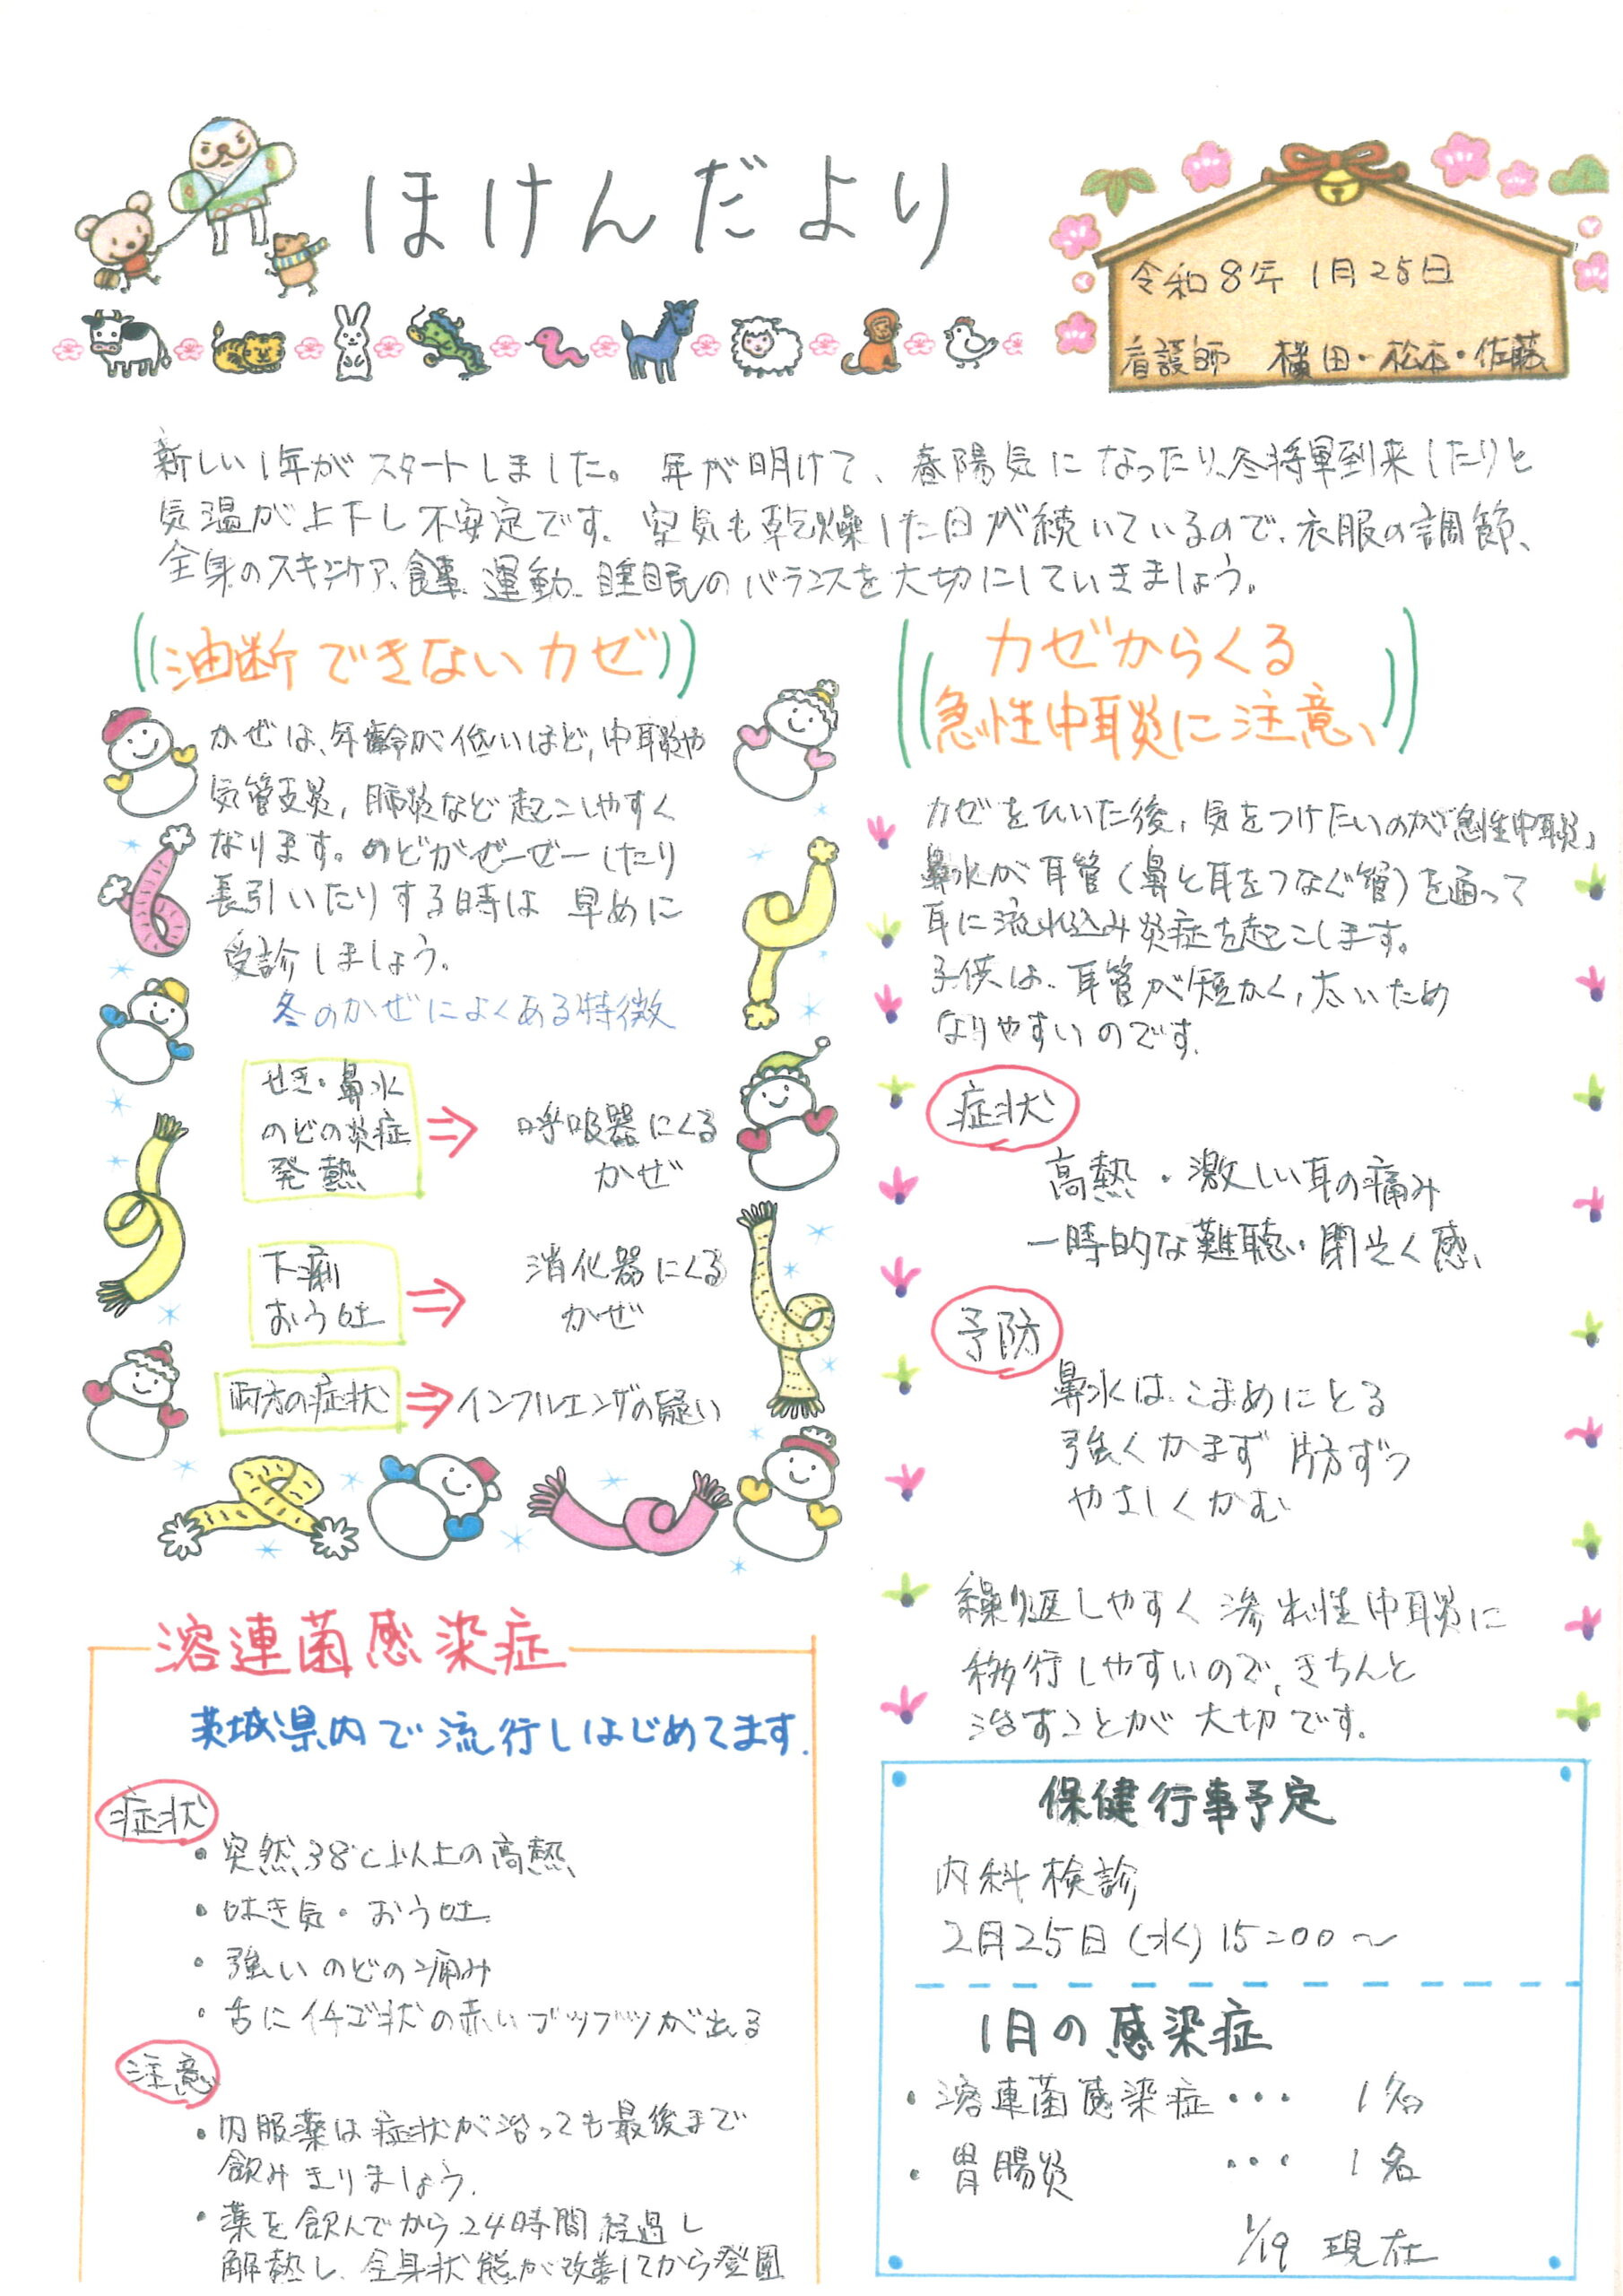 ほけんだより
令和8年 1月25日
看護師 横田・松本・佐藤
新しい1年がスタートしました。年が明けて、春陽気になったり、冬将軍到来したりと
気温が上下し不安定です。空気も乾燥した日が続いているので、衣服の調節、
全身のスキンケア、食事、運動、睡眠のバランスを大切にしていきましょう。
油断できないカゼ
かぜは、年齢が低いほど、中耳炎や
気管支炎、肺炎など起こしやすく
なります。のどがぜーぜーしたり
長引いたりする時は 早めに
受診しましょう。
冬のかぜによくある特徴
せき・鼻水
のどの炎症
発熱
⇒
呼吸器にくる
かぜ
下痢
おう吐
⇒
消化器にくる
かぜ
両方の症状 ⇒ インフルエンザの疑い
カゼからくる
急性中耳炎に注意
カゼをひいた後、気をつけたいのが「急性中耳炎」
鼻水が耳管(鼻と耳をつなぐ管)を通って
耳に流れ込み炎症を起こします。
子供は、耳管が短かく、太いため
なりやすいのです。
症状
高熱・激しい耳の痛み
一時的な難聴・閉そく感
予防
鼻水は、こまめにとる
強くかまず 片方ずつ
やさしくかむ
繰り返しやすく 滲出性中耳炎に
移行しやすいので、きちんと
治すことが 大切です。
溶連菌感染症
茨城県内で流行しはじめてます.
症状
・突然38℃以上の高熱
・吐き気・おう吐
・強いのどの痛み
・舌にイチゴ状の赤いブツブツが出る
注意
・内服薬は症状が治っても最後まで
飲みきりましょう.
・薬を飲んでから24時間経過し
解熱し、全身状態が改善してから登園
保健行事予定
内科検診
2月25日(水)15:00〜
1月の感染症
・溶連菌感染症・・・ 1名
・胃腸炎 ・・・ 1名
1/19 現在